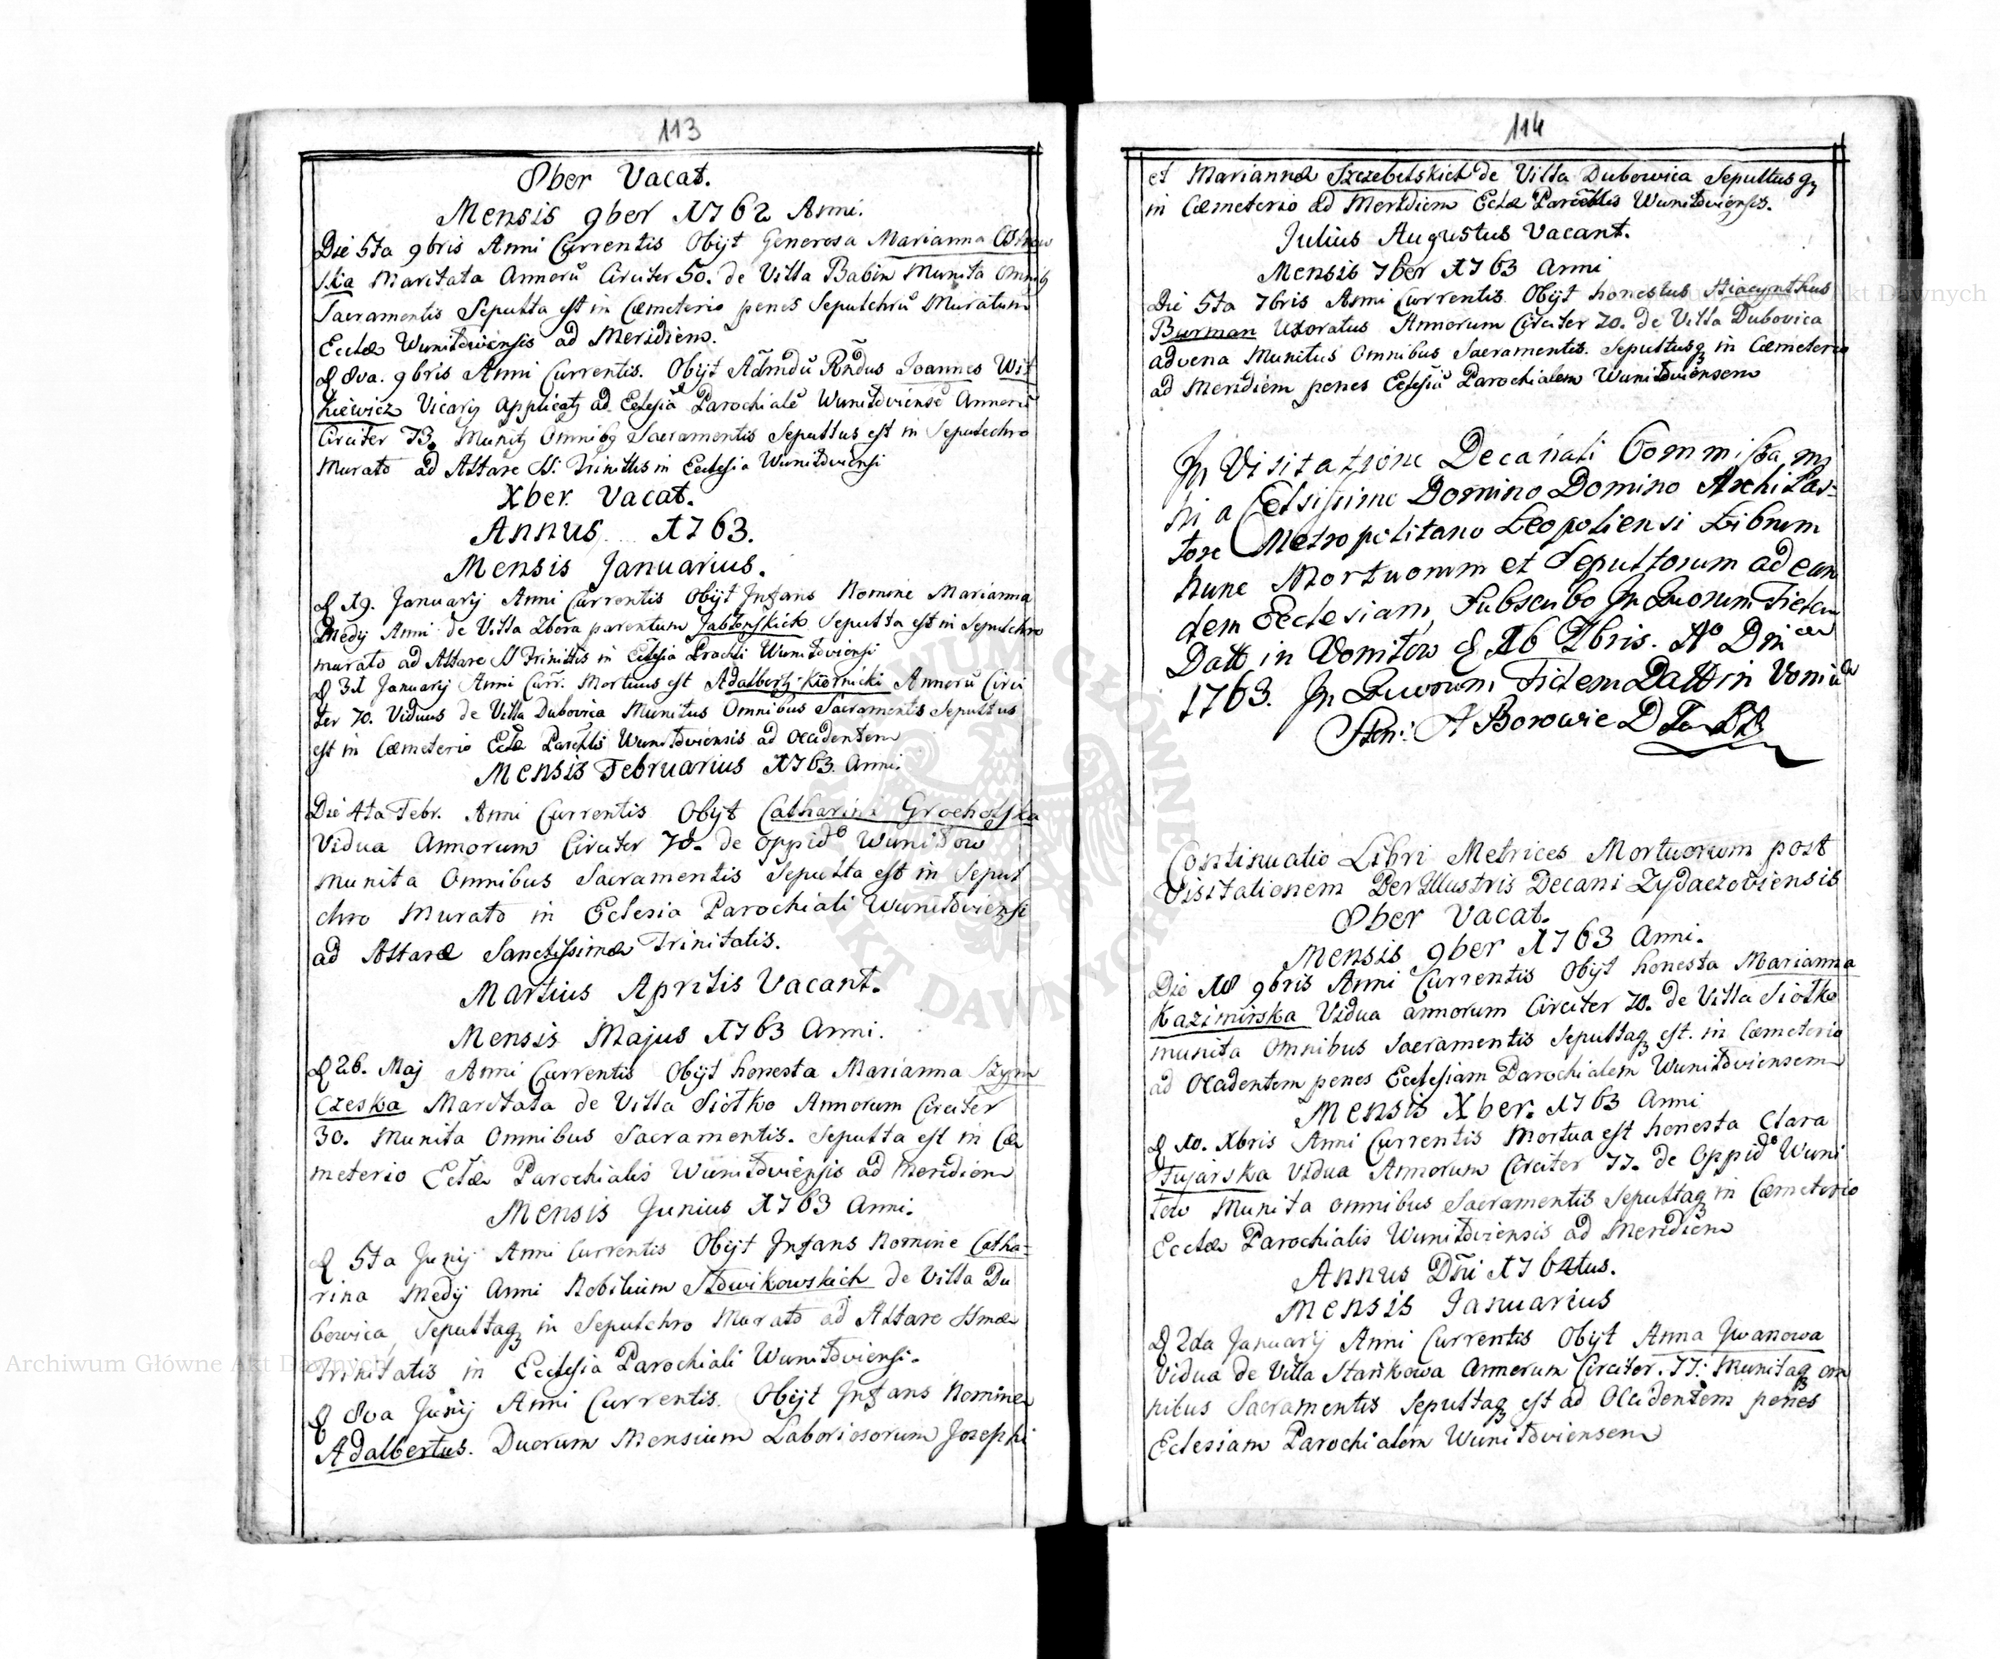 113
8ber Vacat.
Mensis 9ber 1762 Anni.
Die 5ta 9bris Anni Currentis Obijt Generosa Marianna
ska Maritata Annorū Circiter 50. de Villa Babin Munita Omnibq
Sacramentis Sepulta est in Cæmeterio penes Sepulchrū Muratum
Ecclæ Wuniłowiensis ad Meridiem.
D 8va. 9bris Anni Currentis. Obijt Admdū Rndus Joannes Wit
kiewicz Vicariq Applicatq ad Eclesiā Parochialē Wuniłoviensē Annorū
Circiter 73. Munitq Omnibq Sacramentis Sepultus est in Sepulchro
Murato ad Altare SS. Trinittis in Ecclesia Wuniłoviensi
Xber Vacat.
Annus 1763.
Mensis Januarius.
D 19. Januarij Anni Currentis Obijt Infans Nomine Marianna
Medij Anni de Villa Zbora parentum Jabłonskich Sepulta est in Sepulchro
murato ad Altare SS Trinittis in Eclesia Prochli Wuniłoviensi
D 31 Januarij Anni Curr. Mortuus est Adalbertq Kiernicki Annorū Circi
ter 70. Viduus de Villa Dubovica Munitus Omnibus Sacramentis Sepultus
est in Cæmeterio Eclæ Parochlis Wuniłoviensis ad Occidentem
Mensis Februarius 1763. Anni.
Die 4ta Febr. Anni Currentis Obijt Catharina Grocholska
Vidua Annorum Circiter 70. de Oppido Wuniłow
Munita Omnibus Sacramentis Sepulta est in Sepul
chro Murato in Eclesia Parochiali Wuniłoviensi
ad Altare Sanctissimæ Trinitatis.
Martius Aprilis Vacant.
Mensis Majus 1763 Anni.
D 26. Maj Anni Currentis Obijt honesta Marianna Szym
czeska Maritata de Villa Siołko Annorum Circiter
30. Munita Omnibus Sacramentis. Sepulta est in Cæ
meterio Eclæ Parochialis Wuniłoviensis ad Meridiem
Mensis Junius 1763 Anni.
D 5ta Junij Anni Currentis Obijt Infans Nomine Catha-
rina Medij Anni Nobilium Słowikowskich de Villa Du
bowica, Sepultaqz in Sepulchro Murato ad Altare SSmæ
Trinitatis in Ecclesia Parochiali Wuniłoviensi.
D 8va Junij Anni Currentis. Obijt Infans Nomine
Adalbertus. Duorum Mensium Laboriosorum Josephi
114
et Mariannæ Szczebelskich de Villa Dubowica Sepultusqz
in Cæmeterio ad Meridiem Eclæ Parochlis Wuniłoviensis.
Julius Augustus Vacant.
Mensis 7ber 1763 Anni
Die 5ta 7bris Anni Currentis Obijt honestus Hiacynthus
Burman Uxoratus Annorum Circiter 70. de Villa Dubovica
advena Munitus Omnibus Sacramentis. Sepultusqz in Cæmeterio
ad Meridiem penes Eclesiā Parochialem Wuniłoviensem
In Visitatione Decanali Commissa mi
hi a Celsissimo Domino Domino Archi Pas-
tore Metropolitano Leopoliensi Librum
hunc Mortuorum et Sepultorum ad eam
dem Ecclesiam, Subscribo In Quorum Fidem
Datt in Woniłow D 16 7bris. Ao Dni
1763. In Quorum Fidem Datt in
Borowic
Continuatio Libri Metrices Mortuorum post
Visitationem Per Illustris Decani Zydaczoviensis
8ber Vacat.
Mensis 9ber 1763 Anni.
Die 18 9bris Anni Currentis Obijt honesta Marianna
Kazimirska Vidua annorum Circiter 70. de Villa Siołko
munita Omnibus Sacramentis Sepultaqz est. in Cæmeterio
ad Occidentem penes Ecclesiam Parochialem Wuniłoviensem
Mensis Xber. 1763 Anni
D 10. Xbris Anni Currentis Mortua est honesta Clara
Fujarska Vidua Annorum Circiter 77. de Oppido Wuni
low Munita omnibus Sacramentis Sepultaqz in Cæmeterio
Ecclæ Parochialis Wuniłoviensis ad Meridiem
Annus Dni 1764tus.
Mensis Januarius
D 2da Januarij Anni Currentis Obijt Anna Jwanowa
Vidua de Villa Stańkowa Annorum Circiter. 77: Munitaqz om
nibus Sacramentis Sepultaqz est ad Occidentem penes
Eclesiam Parochialem Wuniłoviensem
Archiwum Główne Akt Dawnych
ARCHIWUM GŁÓWNE AKT DAWNYCH